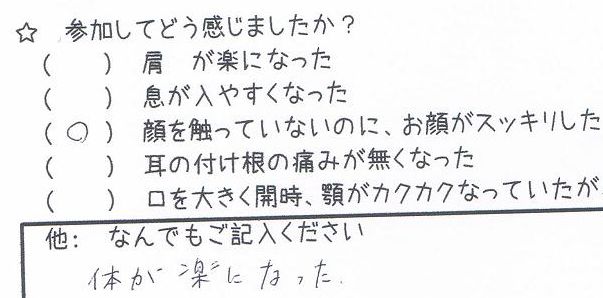 ☆ 参加してどう感じましたか？
（　　）肩　が楽になった
（　　）息が入やすくなった
（ ○ ）顔を触っていないのに、お顔がスッキリした
（　　）耳の付け根の痛みが無くなった
（　　）口を大きく開時、顎がカクカクなっていたが
他： なんでもご記入ください
体が楽になった.